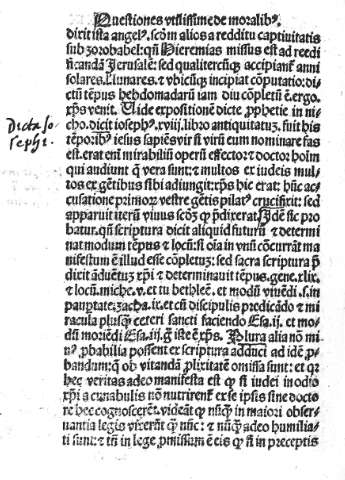 Questiones vtilissime de moralibꝰ.
dixit ista angelꝰ. scd̄m alios a redditu captiuitatis
sub zorobabel: qn̄ Hieremias missus est ad reedi
ficandā Jerusalē: sed qualitercūqꝫ accipianť anni
solares. l̄ lunares. ⁊ vbicūqꝫ incipiat cōputatio: di
ctū tēpus hebdomadarū iam diu cōpletū ē. ergo.
xp̄s venit. Uide expositionē dicte ꝓphetie in
cho. dicit iosephꝰ. xviij. libro antiquitatuꝫ. fuit his
tēporibꝰ iesus sapiēs vir si virū eum nominare fas
est. erat eni mirabiliū operū effector ⁊ doctor hoīm
qui audiunt q̄ vera sunt: ⁊ multos ex iudeis mul
tos ex gētibus sibi adiungit: xp̄s hic erat: hūc ac
cusatione primoꝝ vestre gētis pilatꝰ crucifixit: sed
apparuit iterū viuus scd̄ꝫ ꝙ p̄dixerat. Idē sic pro
batur. qn̄ scriptura dicit aliquid futurū ⁊ determi
nat modum tēpus ⁊ locū: si oīa in vnū cōcurrāt ma
nifestum ē illud esse cōpletuꝫ; sed sacra scriptura p̄
dixit aduētuꝫ xp̄i ⁊ determinauit tēpus. gene. xlix.
⁊ locū. miche. v. et tu bethleē. et modū viuēdi. s. in
paupertate. zacha. ix. et cū discipulis predicādo ⁊ mi
racula plusqꝫ ceteri sancti faciendo Esa. ij. et mo-
dū moriēdi Esa. iij. ḡ iste ē xp̄s. Plura alia nō mi
nꝰ ꝓbabilia possent ex scriptura adduci ad idē ꝓ-
bandum: qꝫ ob vitandā ꝓlixitatē omissa sunt: et qꝛ
hec veritas adeo manifesta est ꝙ si iudei in odio
xp̄i a cunabulis nō nutrirenť ex se ipsis sine docto
re hec cognosceret. videāt ꝙ nūqꝫ in maiori obser-
uantia legis vixerūt ꝙ nūc: ⁊ nūqꝫ adeo humilia-
ti sunt: ⁊ tn̄ in lege ꝓmissum ē eis ꝙ si in preceptis
Dicta Jo
sephi.